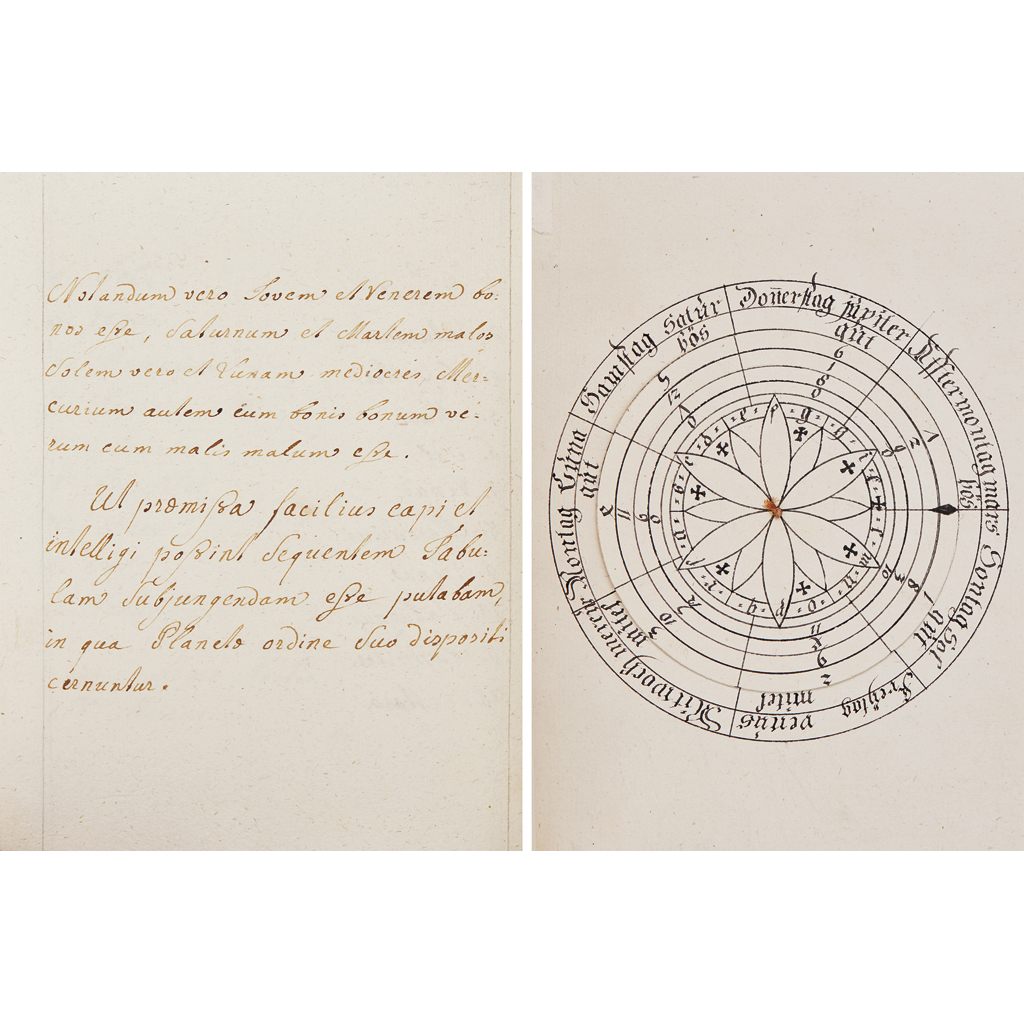 Notandum vero Jovem et Venerem bo:
nos eſse, Saturnum et Martem malos
Solem vero et Lunam mediocres, Mer:
curium autem cum bonis bonum ve:
rum cum malis malum eſse.
Ut præmiſsa facilius capi et
intelligi poſsint Sequentem Tabu:
lam Subjungendam eſse putabam,
in qua Planetæ ordine Suo dispositi
cernuntur.
Donnerstag jupiter
güt
Afftermontag mars
bös
Sontag Sol
güt
Freÿtag venüs
mitel
Mitwoch mercur
mitel
Montag Lüna
güt
Samstag satür
bös
6
1
8
8
5
12
11
6
9
10
3
12
11
5
9
2
10
3
8
1
a b c d e f g g i t m n o p q r v